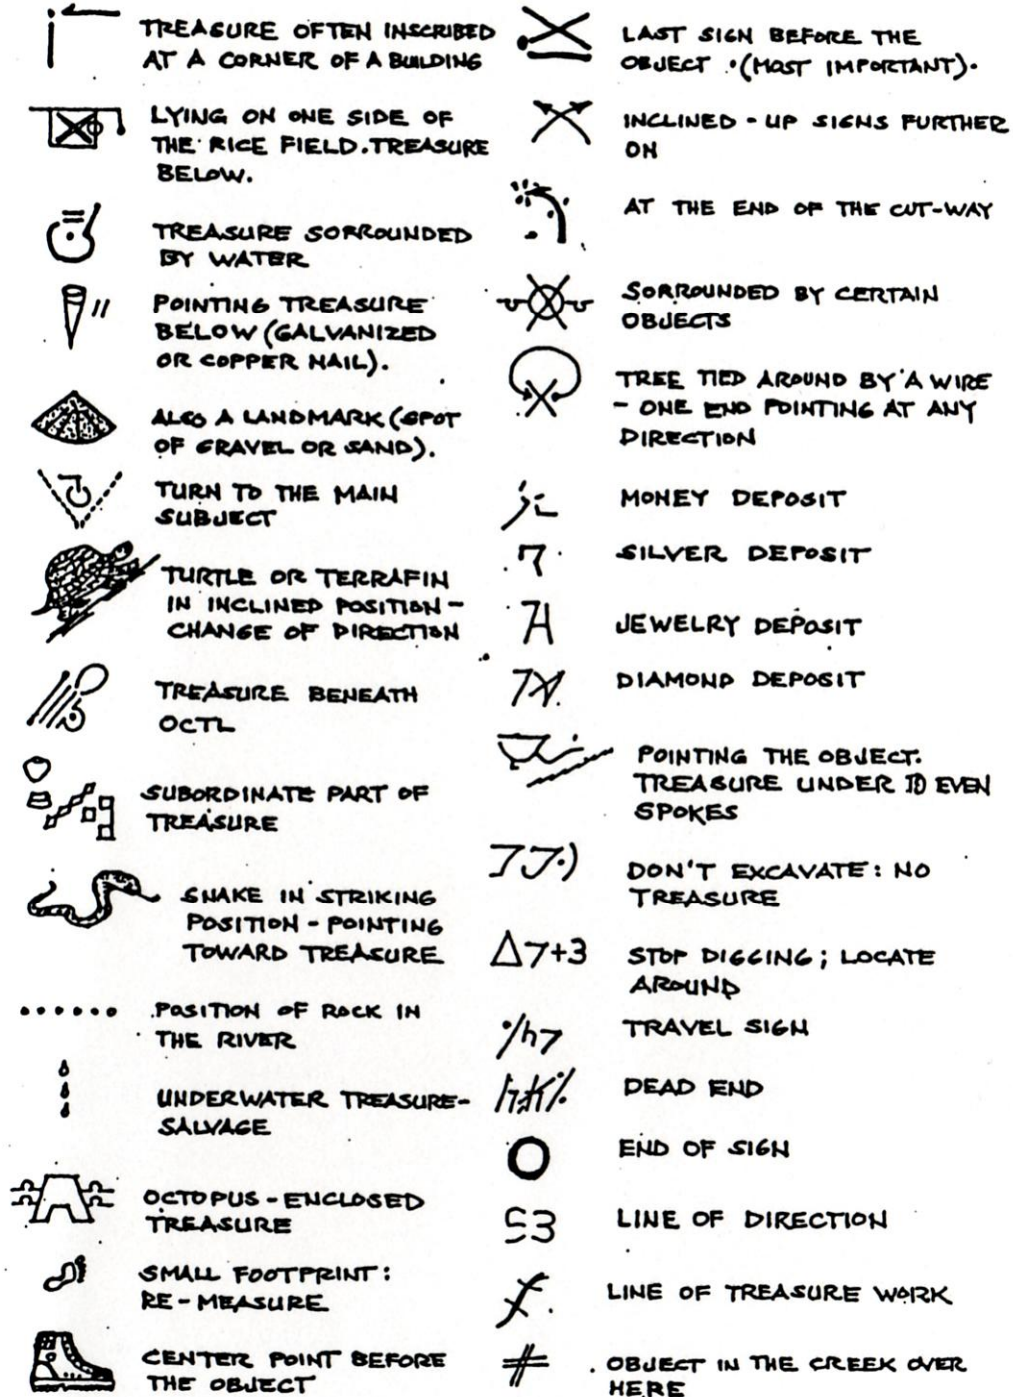 TREASURE OFTEN INSCRIBED
AT A CORNER OF A BUILDING
LYING ON ONE SIDE OF
THE RICE FIELD. TREASURE
BELOW.
TREASURE SORROUNDED
BY WATER
POINTING TREASURE
BELOW (GALVANIZED
OR COPPER NAIL).
ALSO A LANDMARK (SPOT
OF GRAVEL OR SAND).
TURN TO THE MAIN
SUBJECT
TURTLE OR TERRAFIN
IN INCLINED POSITION -
CHANGE OF DIRECTION
TREASURE BENEATH
OCTL
SUBORDINATE PART OF
TREASURE
SNAKE IN STRIKING
POSITION - POINTING
TOWARD TREASURE
POSITION OF ROCK IN
THE RIVER
UNDERWATER TREASURE-
SALVAGE
OCTOPUS - ENCLOSED
TREASURE
SMALL FOOTPRINT:
RE-MEASURE
CENTER POINT BEFORE
THE OBJECT
LAST SIGN BEFORE THE
OBJECT . (MOST IMPORTANT).
INCLINED - UP SIGNS FURTHER
ON
AT THE END OF THE CUT-WAY
SORROUNDED BY CERTAIN
OBJECTS
TREE TIED AROUND BY A WIRE
- ONE END POINTING AT ANY
DIRECTION
MONEY DEPOSIT
SILVER DEPOSIT
JEWELRY DEPOSIT
DIAMOND DEPOSIT
POINTING THE OBJECT.
TREASURE UNDER 10 EVEN
SPOKES
DON'T EXCAVATE: NO
TREASURE
Δ7+3 STOP DIGGING; LOCATE
AROUND
TRAVEL SIGN
DEAD END
END OF SIGN
LINE OF DIRECTION
LINE OF TREASURE WORK
OBJECT IN THE CREEK OVER
HERE